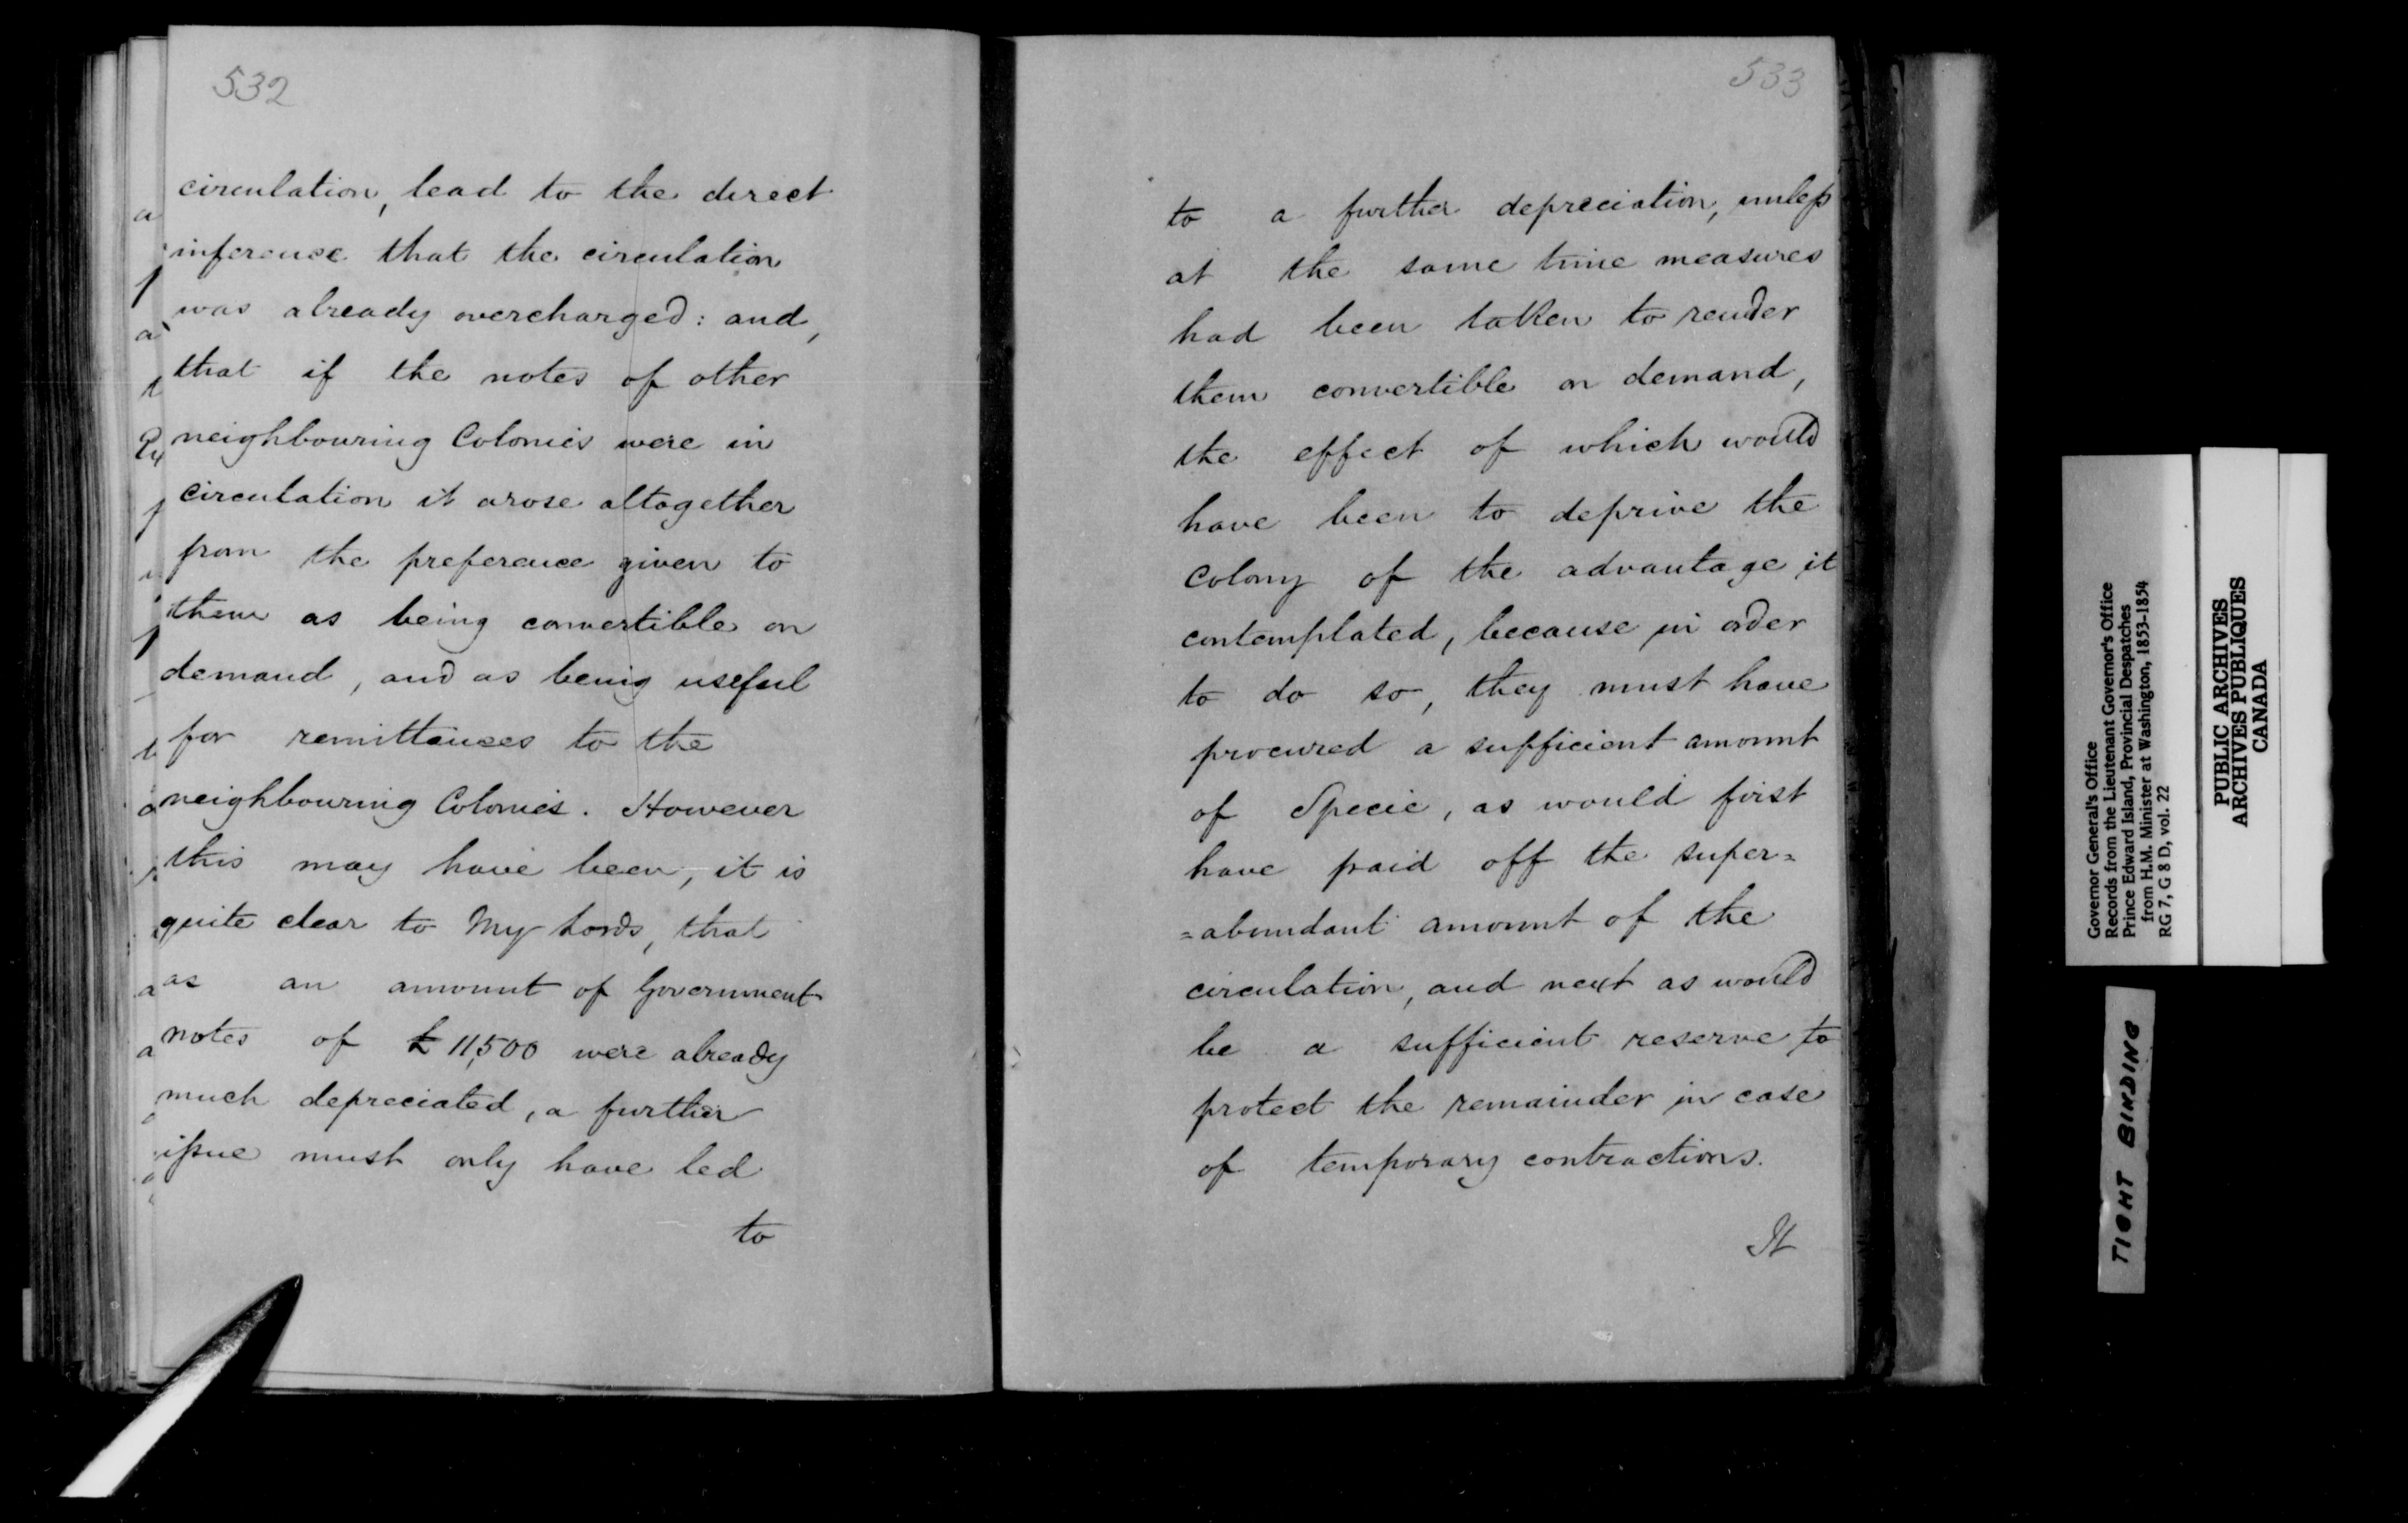 532
circulation, lead to the direct
inference that the circulation
was already overcharged: and,
that if the notes of other
neighbouring Colonies were in
circulation it arose altogether
from the preference given to
them as being convertible on
demand, and as being useful
for remittances to the
neighbouring Colonies. However
this may have been, it is
quite clear to My Lords, that
as an amount of Government
notes of £11,500 were already
much depreciated, a further
issue must only have led
to
533
to a further depreciation, unless
at the same time measures
had been taken to render
them convertible on demand,
the effect of which would
have been to deprive the
Colony of the advantage it
contemplated, because in order
to do so, they must have
procured a sufficient amount
of Specie, as would first
have paid off the super=
=abundant amount of the
circulation, and next as would
be a sufficient reserve to
protect the remainder in case
of temporary contractions.
It
Governor General's Office
Records from the Lieutenant Governor's Office
Prince Edward Island, Provincial Despatches
from H.M. Minister at Washington, 1853-1854
RG 7, G 8 D, vol. 22
PUBLIC ARCHIVES
ARCHIVES PUBLIQUES
CANADA
TIGHT BINDING